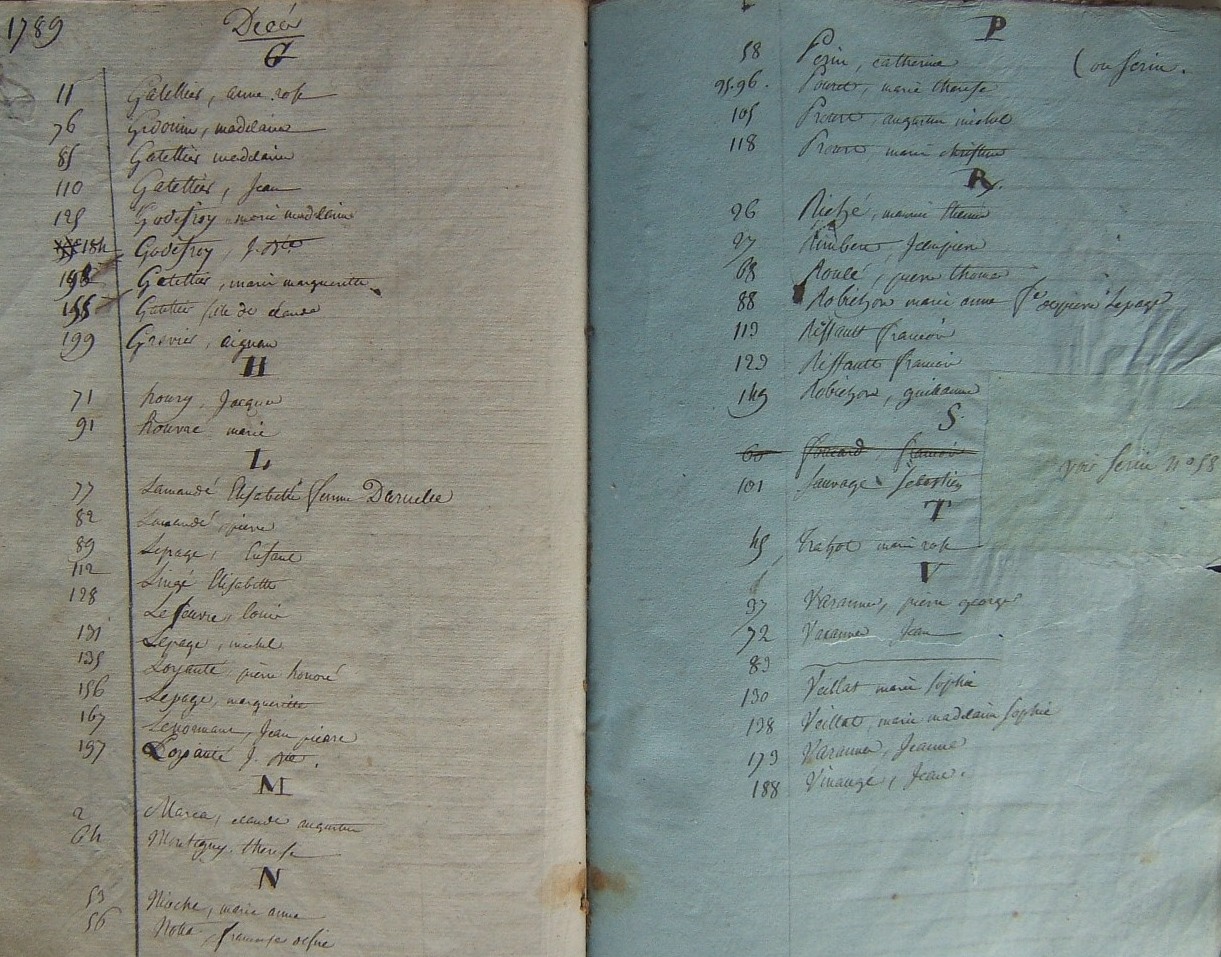 1789
Décès
G
11 Gatellier, anne rose
76 Gidouin, madelaine
85 Gatellier madelaine
110 Gatellier, Jean
125 Godefroy marie madelaine
184 Godefroy, J. Bte
198 Gatellier, marie marguerite
155 Gatellier fille de claude
199 Gravier, aignan
H
71 houry, Jacques
91 houvre marie
L
77 Lamandé Elisabeth femme
82 Lamandé, pierre
89 Lepage, Enfant
112 Lingé Elisabeth
128 Lefeuvre, louis
131 Lepage, michel
135 Loyauté, pierre honoré
156 Lepage, marguerite
167 Lenormant, Jean pierre
197 Loyauté J. Bte.
M
2 claude augustin
64 Montigny, therese
N
53 Nioche, marie anne
56 francoise
P
58 Perin, catherine (ou serin.
95.96. marie therese
105 augustin michel
118 marie christine
R
26 Riché,
27 Rimbert, Jean pierre
68 Roulé, pierre thomas
88 Robichon marie anne fe de pierre Lepage
113 Riffault francois
123 Riffault francois
149 Robichon, guillaume
S
60 francois
101 Sauvage Sébastien
voir serin n° 58
T
45 marie rose
V
37 Varanne, pierre george
72 Varanne Jean
83
130 Veillat marie sophie
138 Veillat, marie madelaine sophie
173 Varanne, Jeanne
188 Vinangé, Jean.